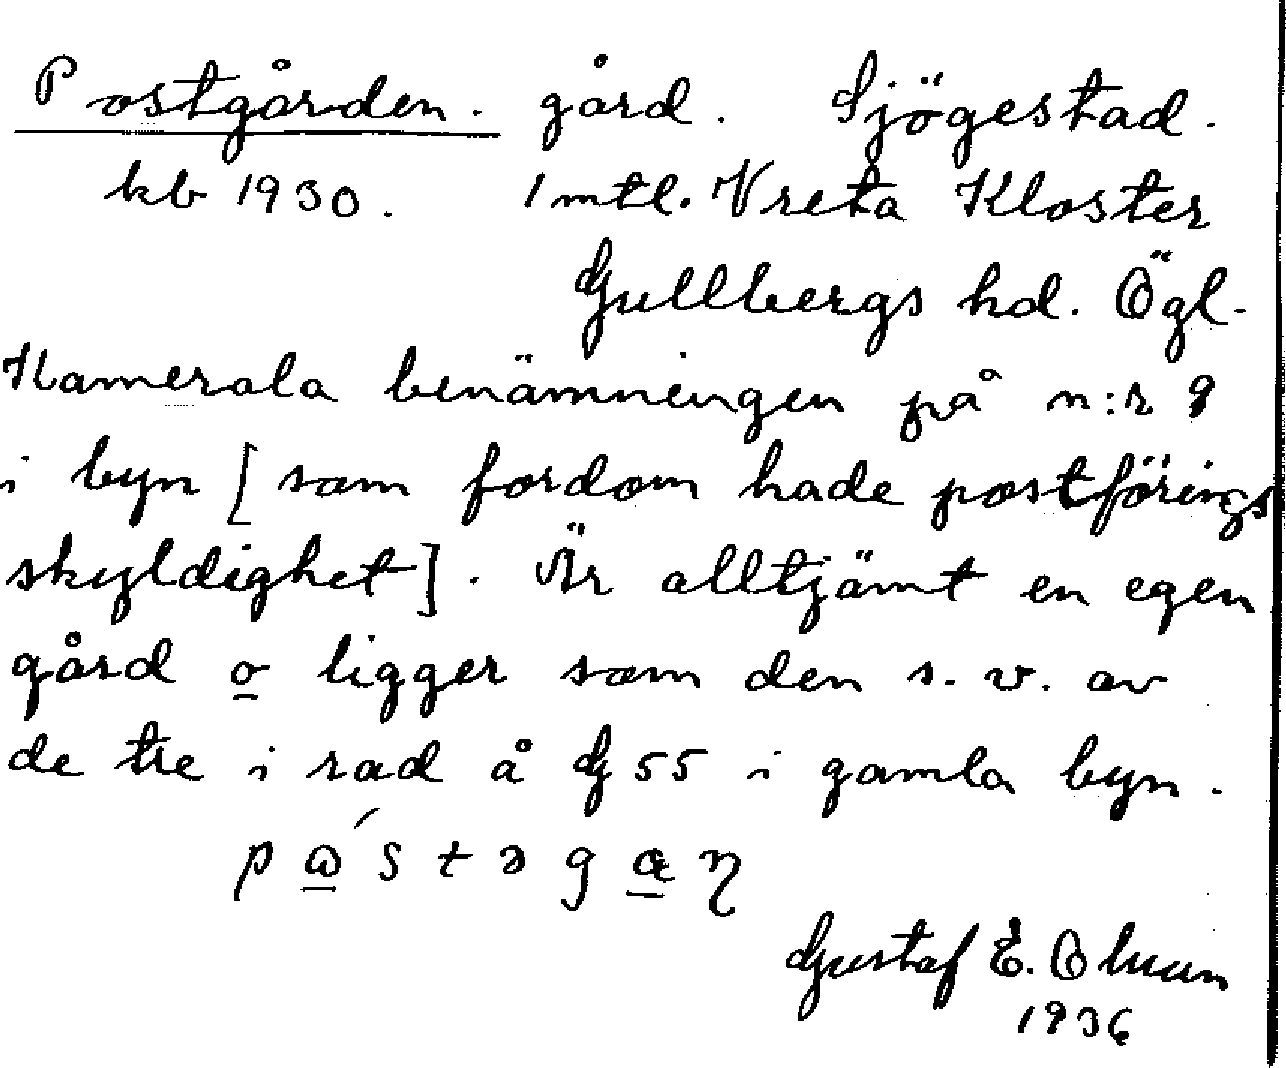 Postgården. gård. Sjögestad.
kb 1930. 1 mtl. Vreta Kloster
Gullbergs hd. Ögl.
Kamerala benämningen på n:r 9
i byn [som fordom hade postförings
skyldighet]. Är alltjämt en egen
gård o ligger som den s. v. av
de tre i rad å G 55 i gamla byn.
Gustaf E.
1936